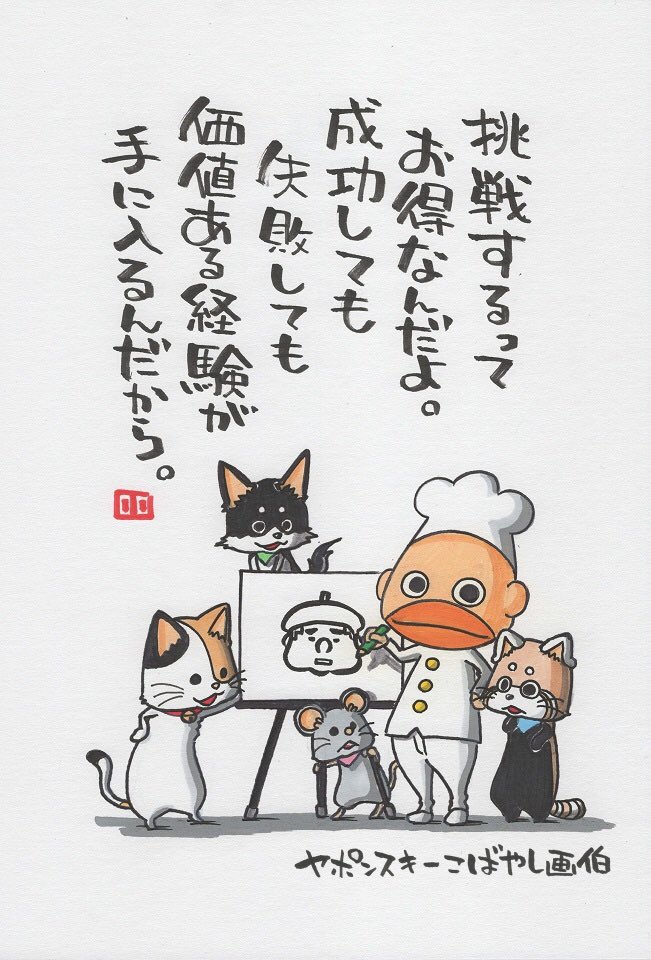 挑戦するって
お得なんだよ。
成功しても
失敗しても
価値ある経験が
手に入るんだから。
ヤポンスキーこばやし画伯